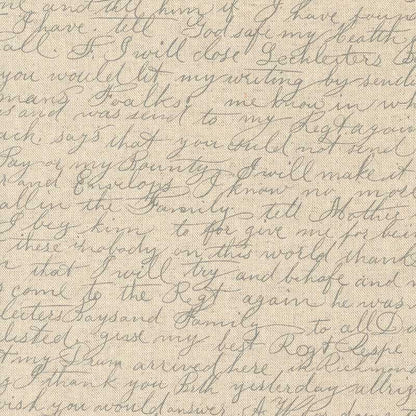 me and tell him if I have
I have. tell God safe my health
all. I will close
you would let my writing by send
Foalks! me know in
and was send to my Regt again
ach says that you could not send
Pay or my Bounty I will make it
and Envelops I know no mor
all in the Family tell Mother
I beg him to for give me for bein
there is nobody on this world thank
that I will try and behafe and
come to the Regt again he was
Paysand Family to all
listed. give my best Regt Respe
my Drum arrived here in Richmond
I thank you yesterday
wish you would answer